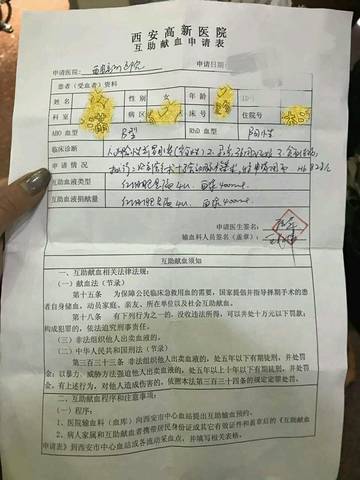 西安高新医院
互助献血申请表
申请医院：
申请日期：
患者（受血者）资料
姓名 性别 女 年龄
科室 病区 床号 住院号
ABO血型 B型 RhD血型 阳性
临床诊断
申请情况
互助血液类型 红细胞悬液4u. 400ml
互助血液捐献量 红细胞悬液4u. 400ml
申请医生签名：
输血科人员签名（盖章）：
互助献血须知
一、互助献血相关律法规：
（一）献血法（节录）
第十五条 为保障公民临床急救用血的需要，国家提倡并指导择期手术的患
者自身储血，动员家庭、亲友、所在单位以及社会互助献血。
第十八条 有下列行为之一的，没收违法所得，可以并处十万元以下罚款；
构成犯罪的，依法追究刑事责任。
（三）非法组织他人出卖血液的。
（二）中华人民共和国刑法（节录）
第三百三十三条 非法组织他人出卖血液的，处五年以下有期徒刑，并处罚
金；以暴力、威胁方法强迫他人出卖血液的，处五年以上十年以下有期徒刑，并处罚金。
有上述行为，对他人造成伤害的，依照本法第三百三十四条的规定定罪处罚。
二、互助献血程序和注意事项：
（一）程序：
1、医院输血科（血库）向西安市中心血站提出互助献血预约。
2、病人家属和互助献血者携带居民身份证或其它有效证件和盖章后的《互助献血
申请表》到西安市中心血站或各街流动采血点，并填写相关表格。